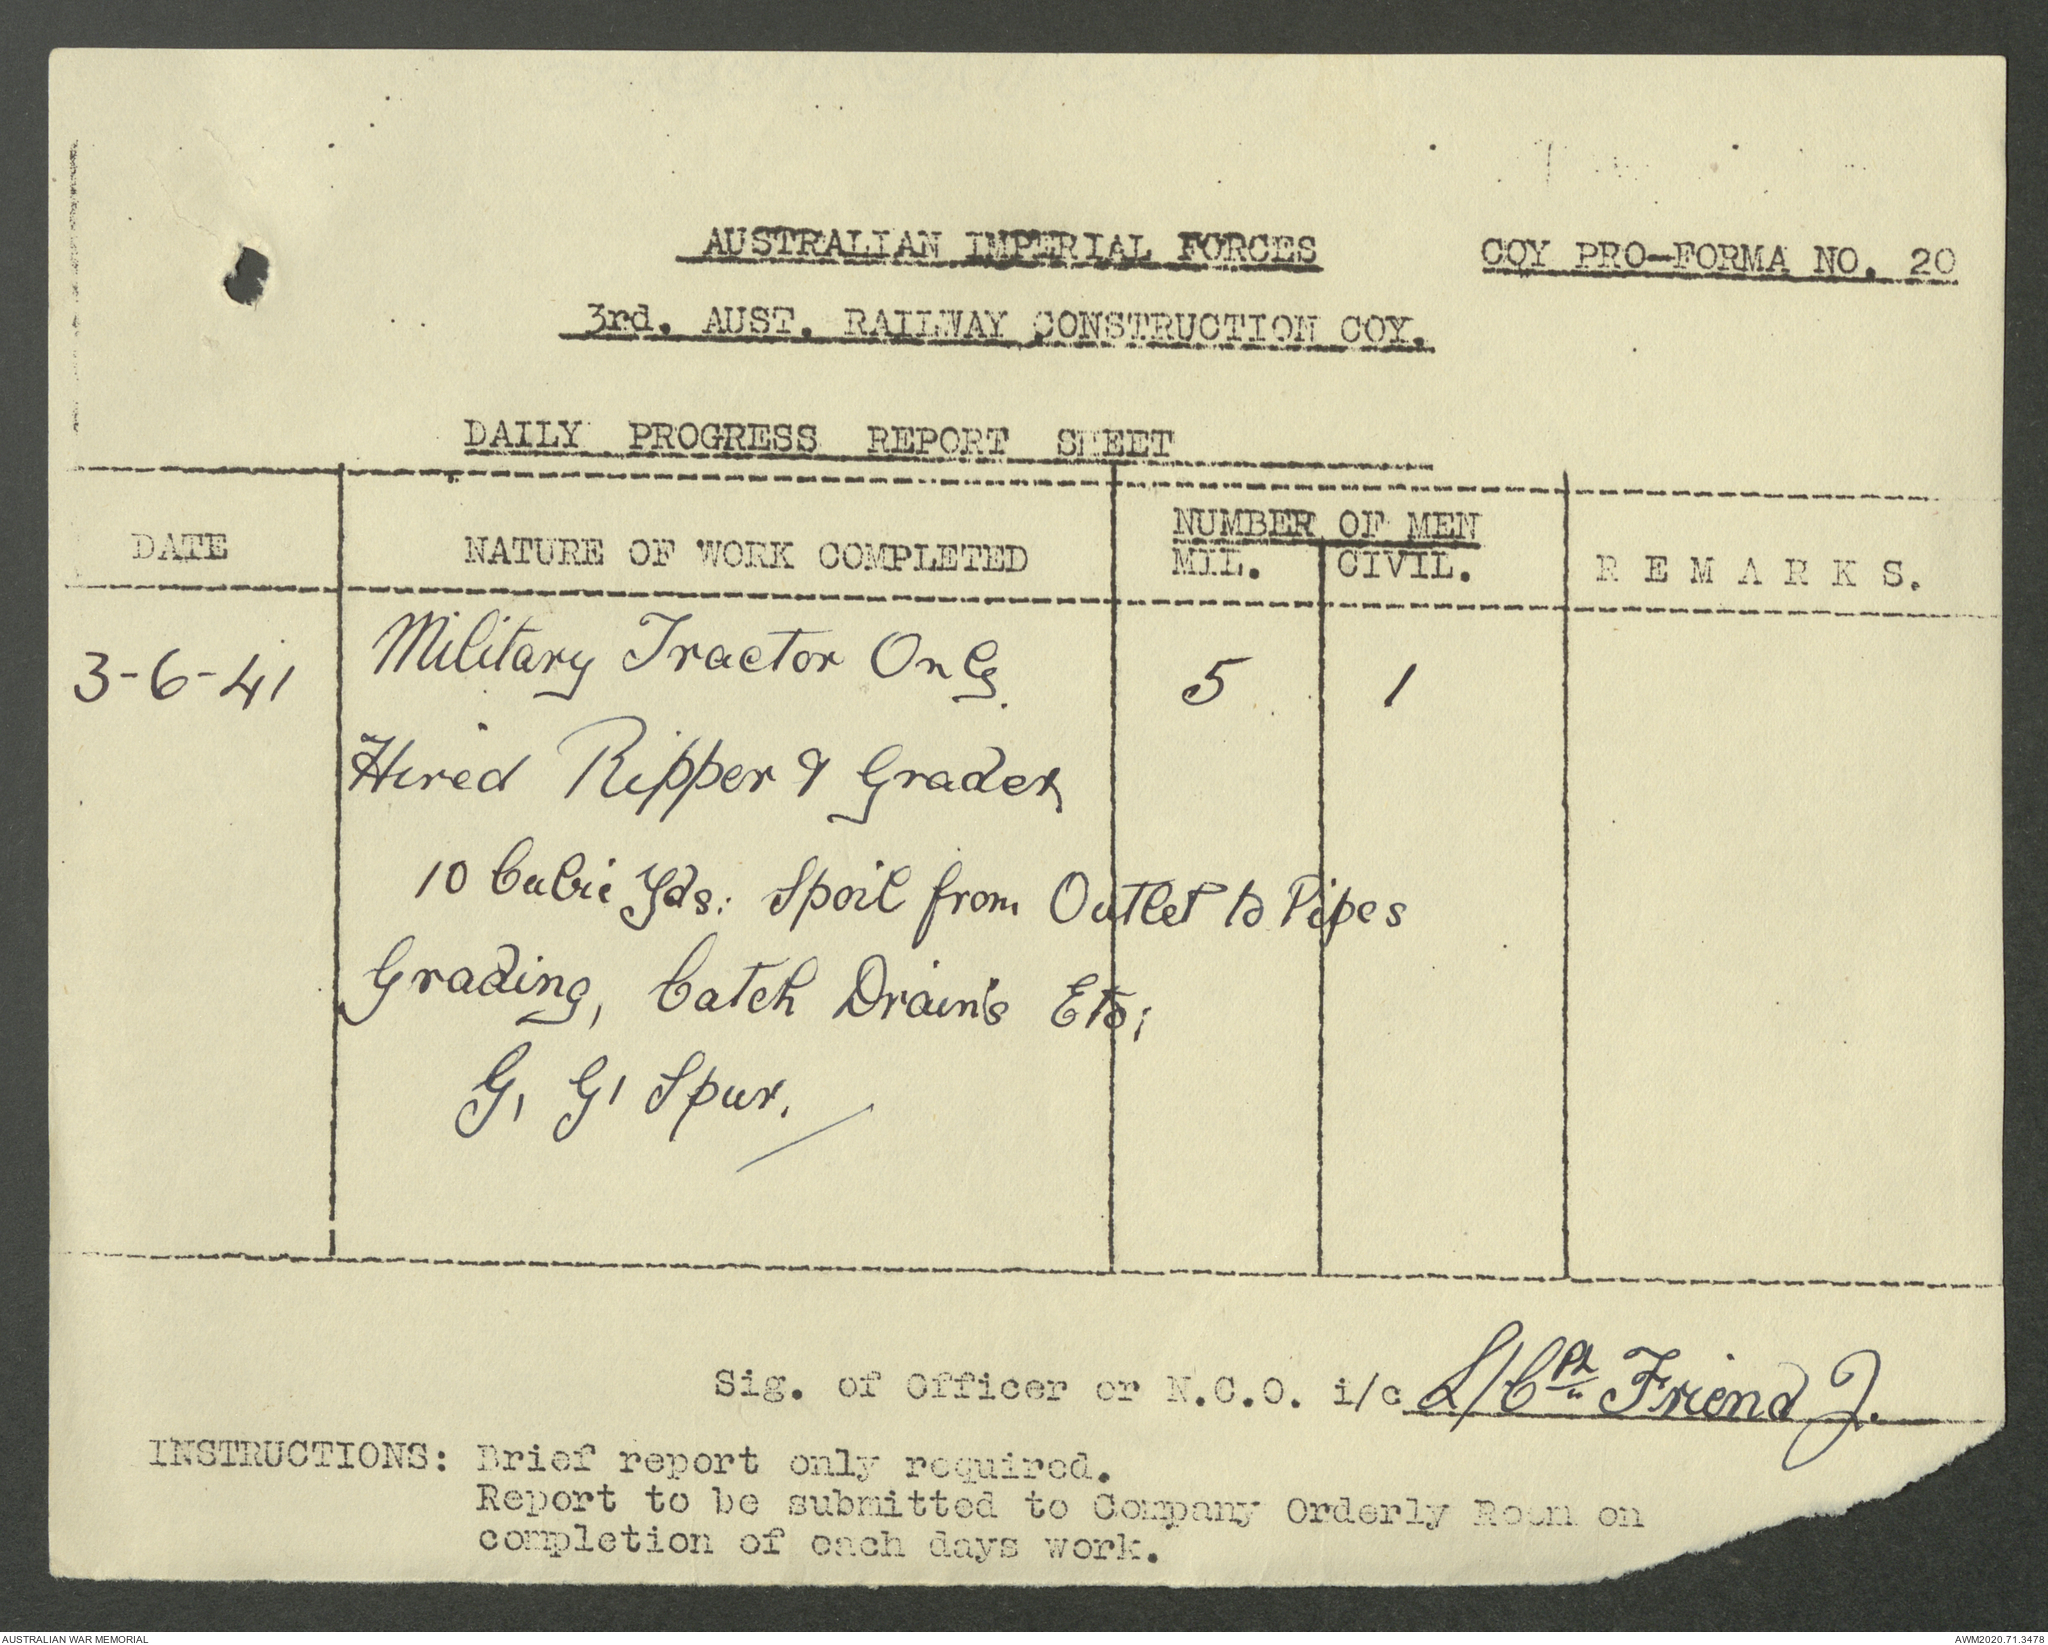 AUSTRALIAN IMPERIAL FORCES
COY PRO-FORMA NO. 20
3rd. AUST. RAILWAY CONSTRUCTION COY.
DAILY PROGRESS REPORT SHEET
DATE
NATURE OF WORK COMPLETED
NUMBER OF MEN
MIL. CIVIL.
REMARKS.
3-6-41 Military Tractor On 5 1
Hired Ripper & Grader
10 Cubic Yds: Spoil from Outlet to Pipes
Grading, Catch Drain's Etc;
G, G, Spur.
Sig. of Officer or N.C.O. i/c L/Cpl Friend J.
INSTRUCTIONS: Brief report only required.
Report to be submitted to Company Orderly Room on
completion of each days work.
AUSTRALIAN WAR MEMORIAL
AWM2020.71.3478